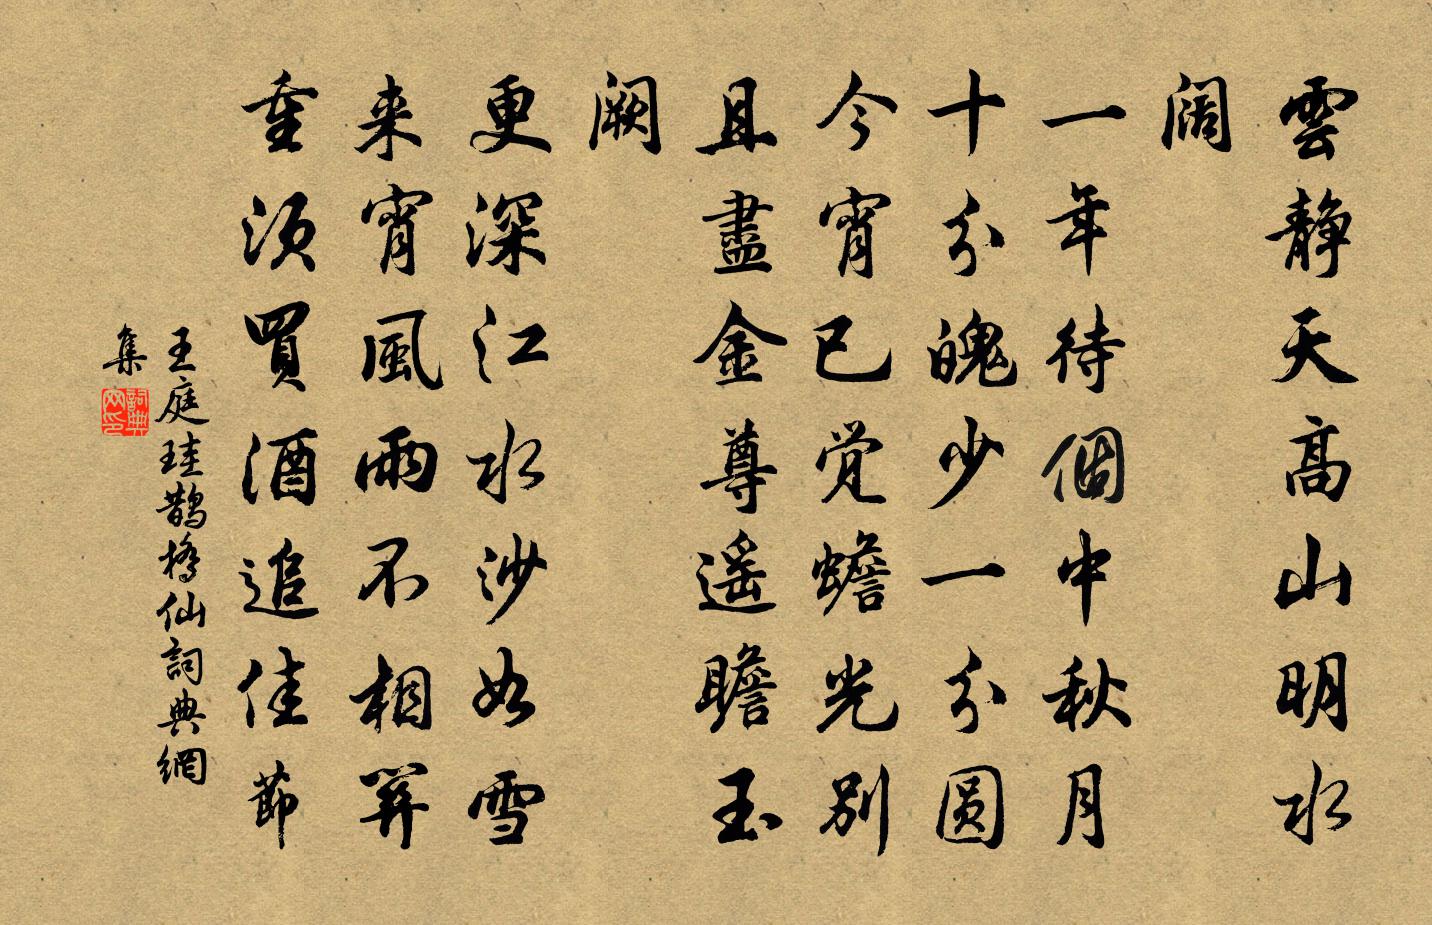 雲靜天高山明水
阔
一年待個中秋月
十分魄少一分圆
今宵已觉蟾光别
且盡金尊遥瞻玉
阙
更深江水沙如雪
来宵風雨不相
重须買酒追佳節
王庭珪鹊橋仙詞典網
集
詞典网印